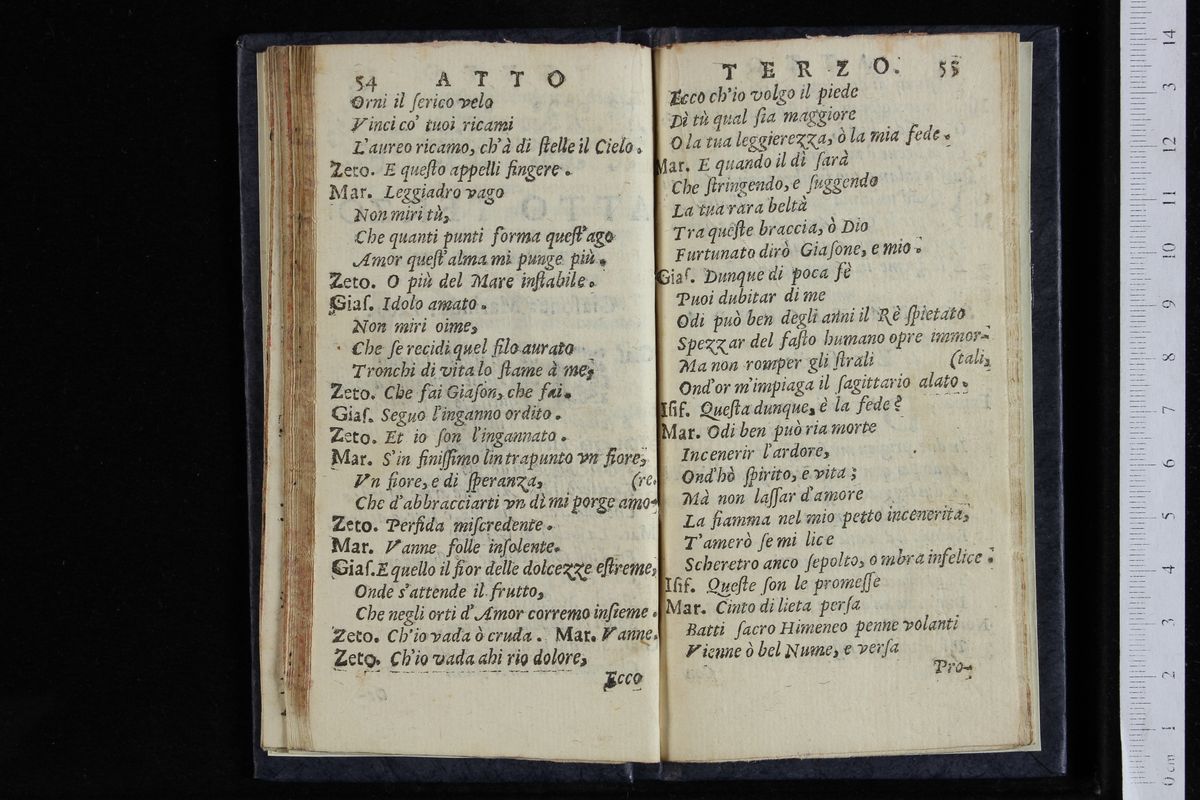 54 ATTO
Orni il ſerico velo
Vinci co' tuoi ricami
L'aureo ricamo, ch'à di ſtelle il Cielo.
Zeto. E queſto appelli fingere.
Mar. Leggiadro vago
Non miri tù,
Che quanti punti forma queſt'ago
Amor queſt'alma mi punge più.
Zeto. O più del Mare inſtabile.
Giaſ. Idolo amato.
Non miri oime,
Che ſe recidi quel filo aurato
Tronchi di vita lo ſtame à me;
Zeto. Che fai Giaſon, che fai.
Giaſ. Seguo l'inganno ordito.
Zeto. Et io ſon l'ingannato.
Mar. S'in finiſſimo lin trapunto vn fiore,
Vn fiore, e di ſperanza, (re.
Che d'abbracciarti vn dì mi porge amo-
Zeto. Perfida miſcredente.
Mar. Vanne folle inſolente.
Giaſ. E quello il fior delle dolcezze eſtreme,
Onde s'attende il frutto,
Che negli orti d'Amor corremo inſieme.
Zeto. Ch'io vada ò cruda. Mar. Vanne.
Zeto. Ch'io vada ahi rio dolore,
Ecco
TERZO. 55
Ecco ch'io volgo il piede
Dì tù qual ſia maggiore
O la tua leggierezza, ò la mia fede.
Mar. E quando il dì ſarà
Che ſtringendo, e ſuggendo
La tua rara beltà
Tra queſte braccia, ò Dio
Furtunato dirò Giaſone, e mio.
Giaſ. Dunque di poca fè
Puoi dubitar di me
Odi può ben degli anni il Rè ſpietato
Spezzar del faſto humano opre immor-
Ma non romper gli ſtrali (tali,
Ond'or m'impiaga il ſagittario alato.
Iſif. Queſta dunque, è la fede?
Mar. Odi ben può ria morte
Incenerir l'ardore,
Ond'hò ſpirito, e vita;
Mà non laſſar d'amore
La fiamma nel mio petto incenerita,
T'amerò ſe mi lice
Scheretro anco ſepolto, ombra infelice.
Iſif. Queſte ſon le promeſſe
Mar. Cinto di lieta perſa
Batti ſacro Himeneo penne volanti
Vienne ò bel Nume, e verſa
Pro-